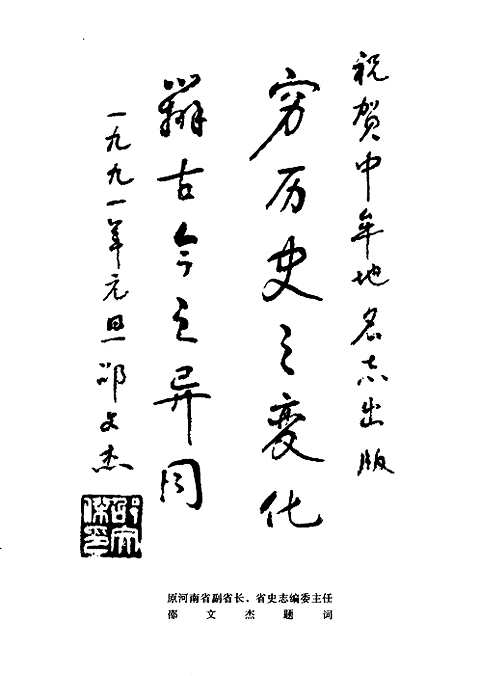 祝贺中牟地名志出版
穷历史之变化
辨古今之异同
一九九一年元旦 邵文杰
原河南省副省长、省史志编委主任
邵文杰题词